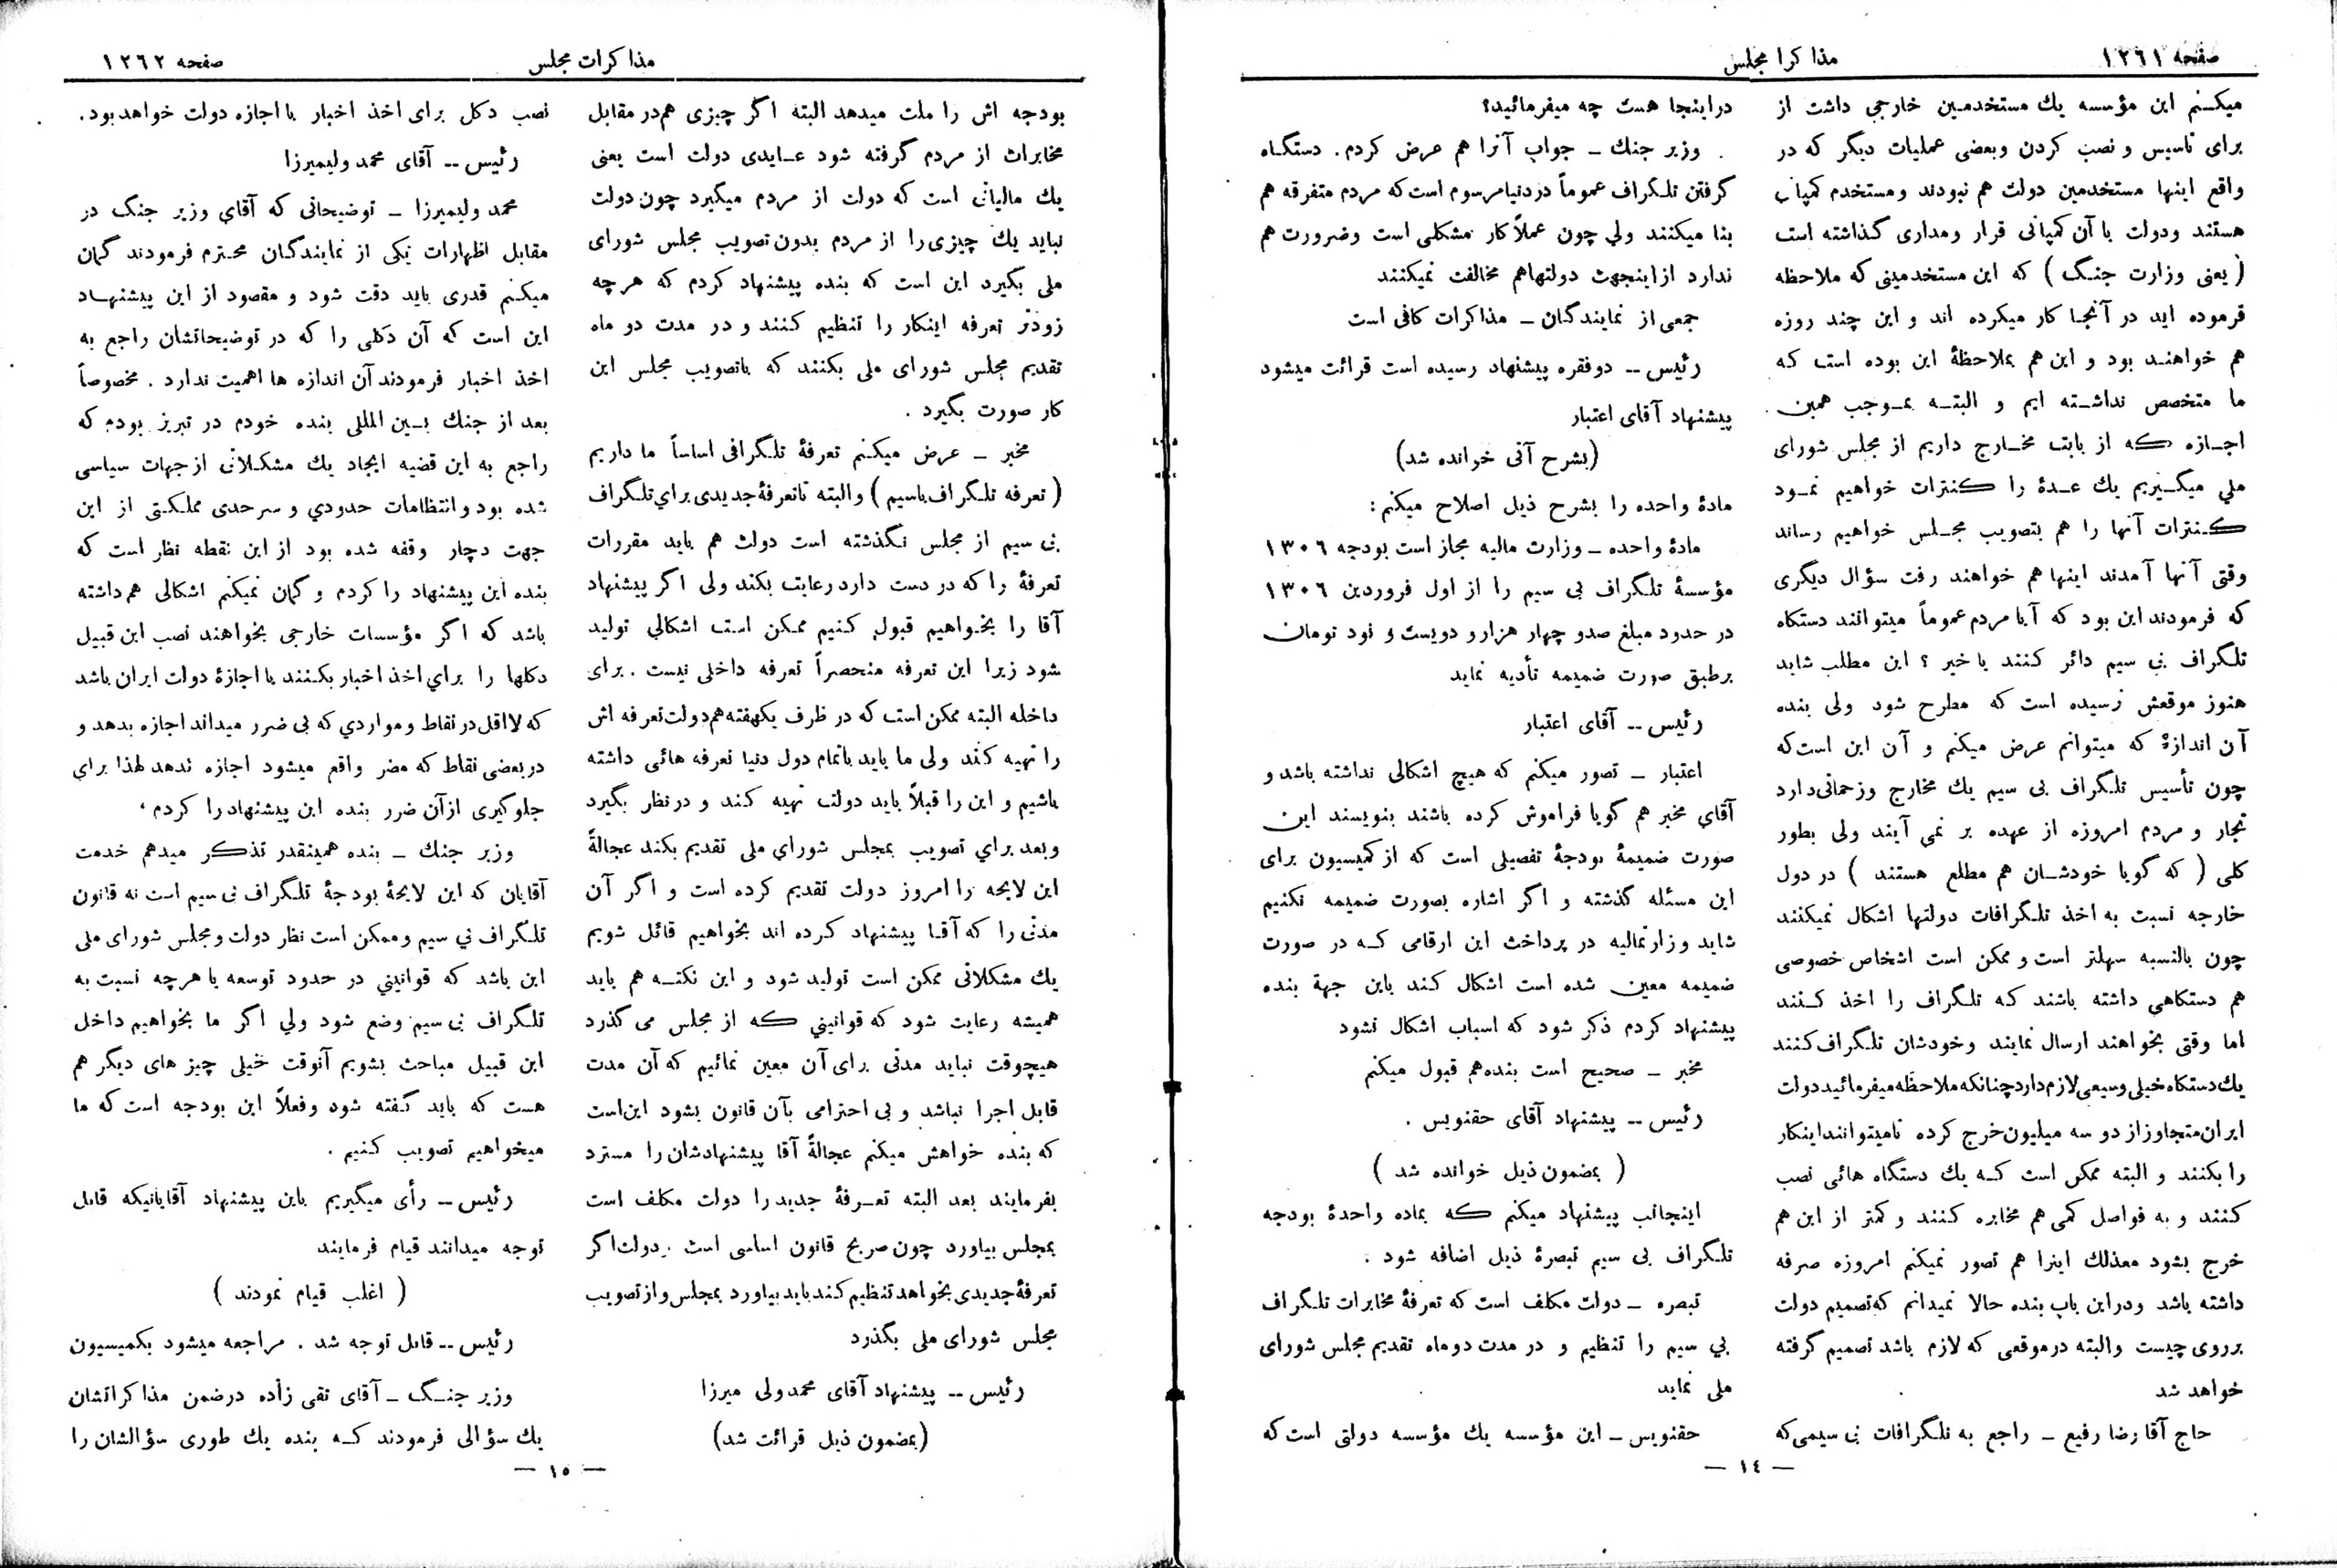 صفحه ١٢٦١
مذا كرا مجلس
ميكنم اين مؤسسه يك مستخدمين خارجي داشت از
براى تاسيس و نصب كردن وبعضى عمليات ديگر كه در
واقع اينها مستخدمين دولت هم نبودند ومستخدم كمپانى
هستند ودولت با آن كمپانى قرار ومدارى گذاشته است
( يعنى وزارت جنگ ) كه اين مستخدمينى كه ملاحظه
فرموده ايد در آنجا كار ميكرده اند و اين چند روزه
هم خواهند بود و اين هم بملاحظهٔ اين بوده است كه
ما متخصص نداشته ايم و البته بموجب همين
اجازه كه از بابت مخارج داريم از مجلس شوراى
ملي ميگيريم يك عدهٔ را كنترات خواهيم نمود
كنترات آنها را هم بتصويب مجلس خواهيم رساند
وقتى آنها آمدند اينها هم خواهند رفت سؤال ديگرى
كه فرمودند اين بود كه آيا مردم عموماً ميتوانند دستكاه
تلگراف بى سيم دائر كنند يا خير ؟ اين مطلب شايد
هنوز موقعش نرسيده است كه مطرح شود ولى بنده
آن اندازهٔ كه ميتوانم عرض ميكنم و آن اين است كه
چون تأسيس تلگراف بى سيم يك مخارج وزحماتى دارد
تجار و مردم امروزه از عهده بر نمى آيند ولى بطور
كلى ( كه گويا خودشان هم مطلع هستند ) در دول
خارجه نسبت به اخذ تلگرافات دولتها اشكال نميكنند
چون بالنسبه سهلتر است و ممكن است اشخاص خصوصى
هم دستكاهى داشته باشند كه تلگراف را اخذ كنند
اما وقتى بخواهند ارسال نمايند وخودشان تلگراف كنند
يك دستكاه خيلى وسيعى لازم دارد چنانكه ملاحظه ميفرمائيد دولت
ايران متجاوز از دو سه ميليون خرج كرده تا ميتوانند اينكار
را بكنند و البته ممكن است كه يك دستگاه هائى نصب
كنند و به فواصل كمى هم مخابره كنند و كمتر از اين هم
خرج بشود معذلك اينرا هم تصور نميكنم امروزه صرفه
داشته باشد ودر اين باب بنده حالا نميدانم كه تصميم دولت
برروى چيست والبته درموقعى كه لازم باشد تصميم گرفته
خواهد شد
حاج آقا رضا رفيع ــ راجع به تلگرافات بى سيمى كه
دراينجا هست چه ميفرمائيد؟
وزير جنك ــ جواب آنرا هم عرض كردم . دستگاه
گرفتن تلگراف عموماً در دنيا مرسوم است كه مردم متفرقه هم
بنا ميكنند ولي چون عملاً كار مشكلى است وضرورت هم
ندارد از اينجهت دولتها هم مخالفت نميكنند
جمعى از نمايندگان ــ مذاكرات كافى است
رئيس ــ دوفقره پيشنهاد رسيده است قرائت ميشود
پيشنهاد آقاى اعتبار
(بشرح آتى خوانده شد)
مادهٔ واحده را بشرح ذيل اصلاح ميكنم :
مادهٔ واحده ــ وزارت ماليه مجاز است بودجه ١٣٠٦
مؤسسهٔ تلگراف بى سيم را از اول فروردين ١٣٠٦
در حدود مبلغ صدو چهار هزار و دويست و نود تومان
برطبق صورت ضميمه تأديه نمايد
رئيس ــ آقاى اعتبار
اعتبار ــ تصور ميكنم كه هيچ اشكالى نداشته باشد و
آقاي مخبر هم گويا فراموش كرده باشند بنويسند اين
صورت ضميمهٔ بودجهٔ تفصيلى است كه از كميسيون براى
اين مسئله گذشته و اگر اشاره بصورت ضميمه نكنيم
شايد وزارتماليه در پرداخت اين ارقامى كه در صورت
ضميمه معين شده است اشكال كند باين جهة بنده
پيشنهاد كردم ذكر شود كه اسباب اشكال نشود
مخبر ــ صحيح است بنده هم قبول ميكنم
رئيس ــ پيشنهاد آقاى حقنويس .
( بمضمون ذيل خوانده شد )
اينجانب پيشنهاد ميكنم كه بماده واحدهٔ بودجه
تلگراف بى سيم تبصرهٔ ذيل اضافه شود .
تبصره ــ دولت مكلف است كه تعرفهٔ مخابرات تلگراف
بي سيم را تنظيم و در مدت دوماه تقديم مجلس شوراى
ملى نمايد
حقنويس ــ اين مؤسسه يك مؤسسه دولتى است كه
— ١٤ —
مذا كرات مجلس
صفحه ١٢٦٢
بودجه اش را ملت ميدهد البته اگر چيزى هم در مقابل
مخابرات از مردم گرفته شود عايدى دولت است يعنى
يك مالياتى است كه دولت از مردم ميگيرد چون دولت
نبايد يك چيزى را از مردم بدون تصويب مجلس شوراى
ملى بگيرد اين است كه بنده پيشنهاد كردم كه هرچه
زودتر تعرفه اينكار را تنظيم كنند و در مدت دو ماه
تقديم مجلس شوراى ملى بكنند كه باتصويب مجلس اين
كار صورت بگيرد .
مخبر ــ عرض ميكنم تعرفهٔ تلگرافى اساساً ما داريم
( تعرفه تلگراف باسيم ) والبته تا تعرفهٔ جديدى براي تلگراف
بى سيم از مجلس نگذشته است دولت هم بايد مقررات
تعرفهٔ را كه در دست دارد رعايت بكند ولى اگر پيشنهاد
آقا را بخواهيم قبول كنيم ممكن است اشكالي توليد
شود زيرا اين تعرفه منحصراً تعرفه داخلى نيست . براى
داخله البته ممكن است كه در ظرف يكهفته هم دولت تعرفه اش
را تهيه كند ولى ما بايد باتمام دول دنيا تعرفه هائى داشته
باشيم و اين را قبلاً بايد دولت تهيه كند و در نظر بگيرد
وبعد براي تصويب بمجلس شوراي ملى تقديم بكند عجالةً
اين لايحه را امروز دولت تقديم كرده است و اگر آن
مدتى را كه آقا پيشنهاد كرده اند بخواهيم قائل شويم
يك مشكلاتى ممكن است توليد شود و اين نكته هم بايد
هميشه رعايت شود كه قوانيني كه از مجلس مى گذرد
هيچوقت نبايد مدتى براى آن معين نمائيم كه آن مدت
قابل اجرا نباشد و بى احترامى بآن قانون بشود اين است
كه بنده خواهش ميكنم عجالةً آقا پيشنهادشان را مسترد
بفرمايند بعد البته تعرفهٔ جديد را دولت مكلف است
بمجلس بياورد چون صريح قانون اساسى است . دولت اگر
تعرفهٔ جديدى بخواهد تنظيم كند بايد بياورد بمجلس و از تصويب
مجلس شوراى ملى بگذرد
رئيس ــ پيشنهاد آقاى محمد ولى ميرزا
(بمضمون ذيل قرائت شد)
نصب دكل براى اخذ اخبار با اجازه دولت خواهد بود .
رئيس ــ آقاى محمد وليميرزا
محمد وليميرزا ــ توضيحاتى كه آقاي وزير جنگ در
مقابل اظهارات يكى از نمايندگان محترم فرمودند گمان
ميكنم قدرى بايد دقت شود و مقصود از اين پيشنهاد
اين است كه آن دكلى را كه در توضيحاتشان راجع به
اخذ اخبار فرمودند آن اندازه ها اهميت ندارد . مخصوصاً
بعد از جنك بين المللى بنده خودم در تبريز بودم كه
راجع به اين قضيه ايجاد يك مشكلاتى از جهات سياسى
شده بود و انتظامات حدودي و سرحدى مملكتى از اين
جهت دچار وقفه شده بود از اين نقطه نظر است كه
بنده اين پيشنهاد را كردم و گمان نميكنم اشكالى هم داشته
باشد كه اگر مؤسسات خارجى بخواهند نصب اين قبيل
دكلها را براي اخذ اخبار بكنند با اجازهٔ دولت ايران باشد
كه لااقل در نقاط و مواردي كه بى ضرر ميداند اجازه بدهد و
در بعضى نقاط كه مضر واقع ميشود اجازه ندهد لهذا براي
جلوگيرى از آن ضرر بنده اين پيشنهاد را كردم ،
وزير جنك ــ بنده همينقدر تذكر ميدهم خدمت
آقايان كه اين لايحهٔ بودجهٔ تلگراف بى سيم است نه قانون
تلگراف بي سيم وممكن است نظر دولت ومجلس شوراى ملى
اين باشد كه قوانيني در حدود توسعه يا هرچه نسبت به
تلگراف بى سيم وضع شود ولي اگر ما بخواهيم داخل
اين قبيل مباحث بشويم آنوقت خيلى چيز هاى ديگر هم
هست كه بايد گفته شود وفعلاً اين بودجه است كه ما
ميخواهيم تصويب كنيم .
رئيس ــ رأى ميگيريم باين پيشنهاد آقايانيكه قابل
توجه ميدانند قيام فرمايند
( اغلب قيام نمودند )
رئيس ــ قابل توجه شد . مراجعه ميشود بكميسيون
وزير جنگ ــ آقاى تقى زاده درضمن مذاكراتشان
يك سؤالى فرمودند كه بنده يك طورى سؤالشان را
— ١٥ —